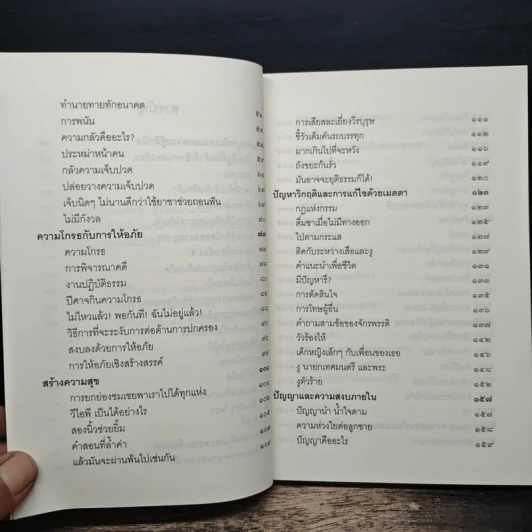 ทำนายทายทักอนาคต
การพนัน
ความกลัวคืออะไร?
ประหม่าหน้าคน
กลัวความเจ็บปวด
ปล่อยวางความเจ็บปวด
เจ็บนิดๆ ไม่นานดีกว่าใช้ยาชาช่วยถอนฟัน
ไม่มีกังวล
ความโกรธกับการให้อภัย
ความโกรธ
การพิจารณาคดี
งานปฏิบัติธรรม
ปีศาจกินความโกรธ
ไม่ไหวแล้ว! พอกันที! ฉันไม่อยู่แล้ว!
วิธีการที่จะระงับการต่อต้านการปกครอง
สงบลงด้วยการให้อภัย
การให้อภัยเชิงสร้างสรรค์
สร้างความสุข
การยกย่องชมเชยพาเราไปได้ทุกแห่ง
วีไอพี เป็นได้อย่างไร
สองนิ้วช่วยยิ้ม
คำสอนที่ล้ำค่า
แล้วมันจะผ่านพ้นไปเช่นกัน
การเสียสละเยี่ยงวีรบุรุษ ๑๑๑
ขี้วัวเต็มคันรถบรรทุก ๑๑๒
มากเกินไปที่จะหวัง ๑๑๖
ถังขยะก้นรั่ว ๑๑๙
มันอาจจะยุติธรรมก็ได้! ๑๒๐
ปัญหาวิกฤติและการแก้ไขด้วยเมตตา ๑๒๓
กฎแห่งกรรม
ดื่มชาเมื่อไม่มีทางออก ๑๒๕
ไปตามกระแส ๑๒๗
ติดกับระหว่างเสือและงู ๑๒๙
คำแนะนำเพื่อชีวิต ๑๓๑
มีปัญหารึ? ๑๓๓
การตัดสินใจ ๑๓๕
การโทษผู้อื่น
คำถามสามข้อของจักรพรรดิ ๑๓๗
วัวร้องไห้
เด็กหญิงเล็กๆ กับเพื่อนของเธอ ๑๔๖
งู นายกเทศมนตรี และพระ ๑๔๘
งูตัวร้าย ๑๕๒
ปัญญาและความสงบภายใน ๑๕๗
ปัญญานำ น้ำใจตาม
ความห่วงใยต่อลูกชาย ๑๕๘
ปัญญาคืออะไร ๑๕๙